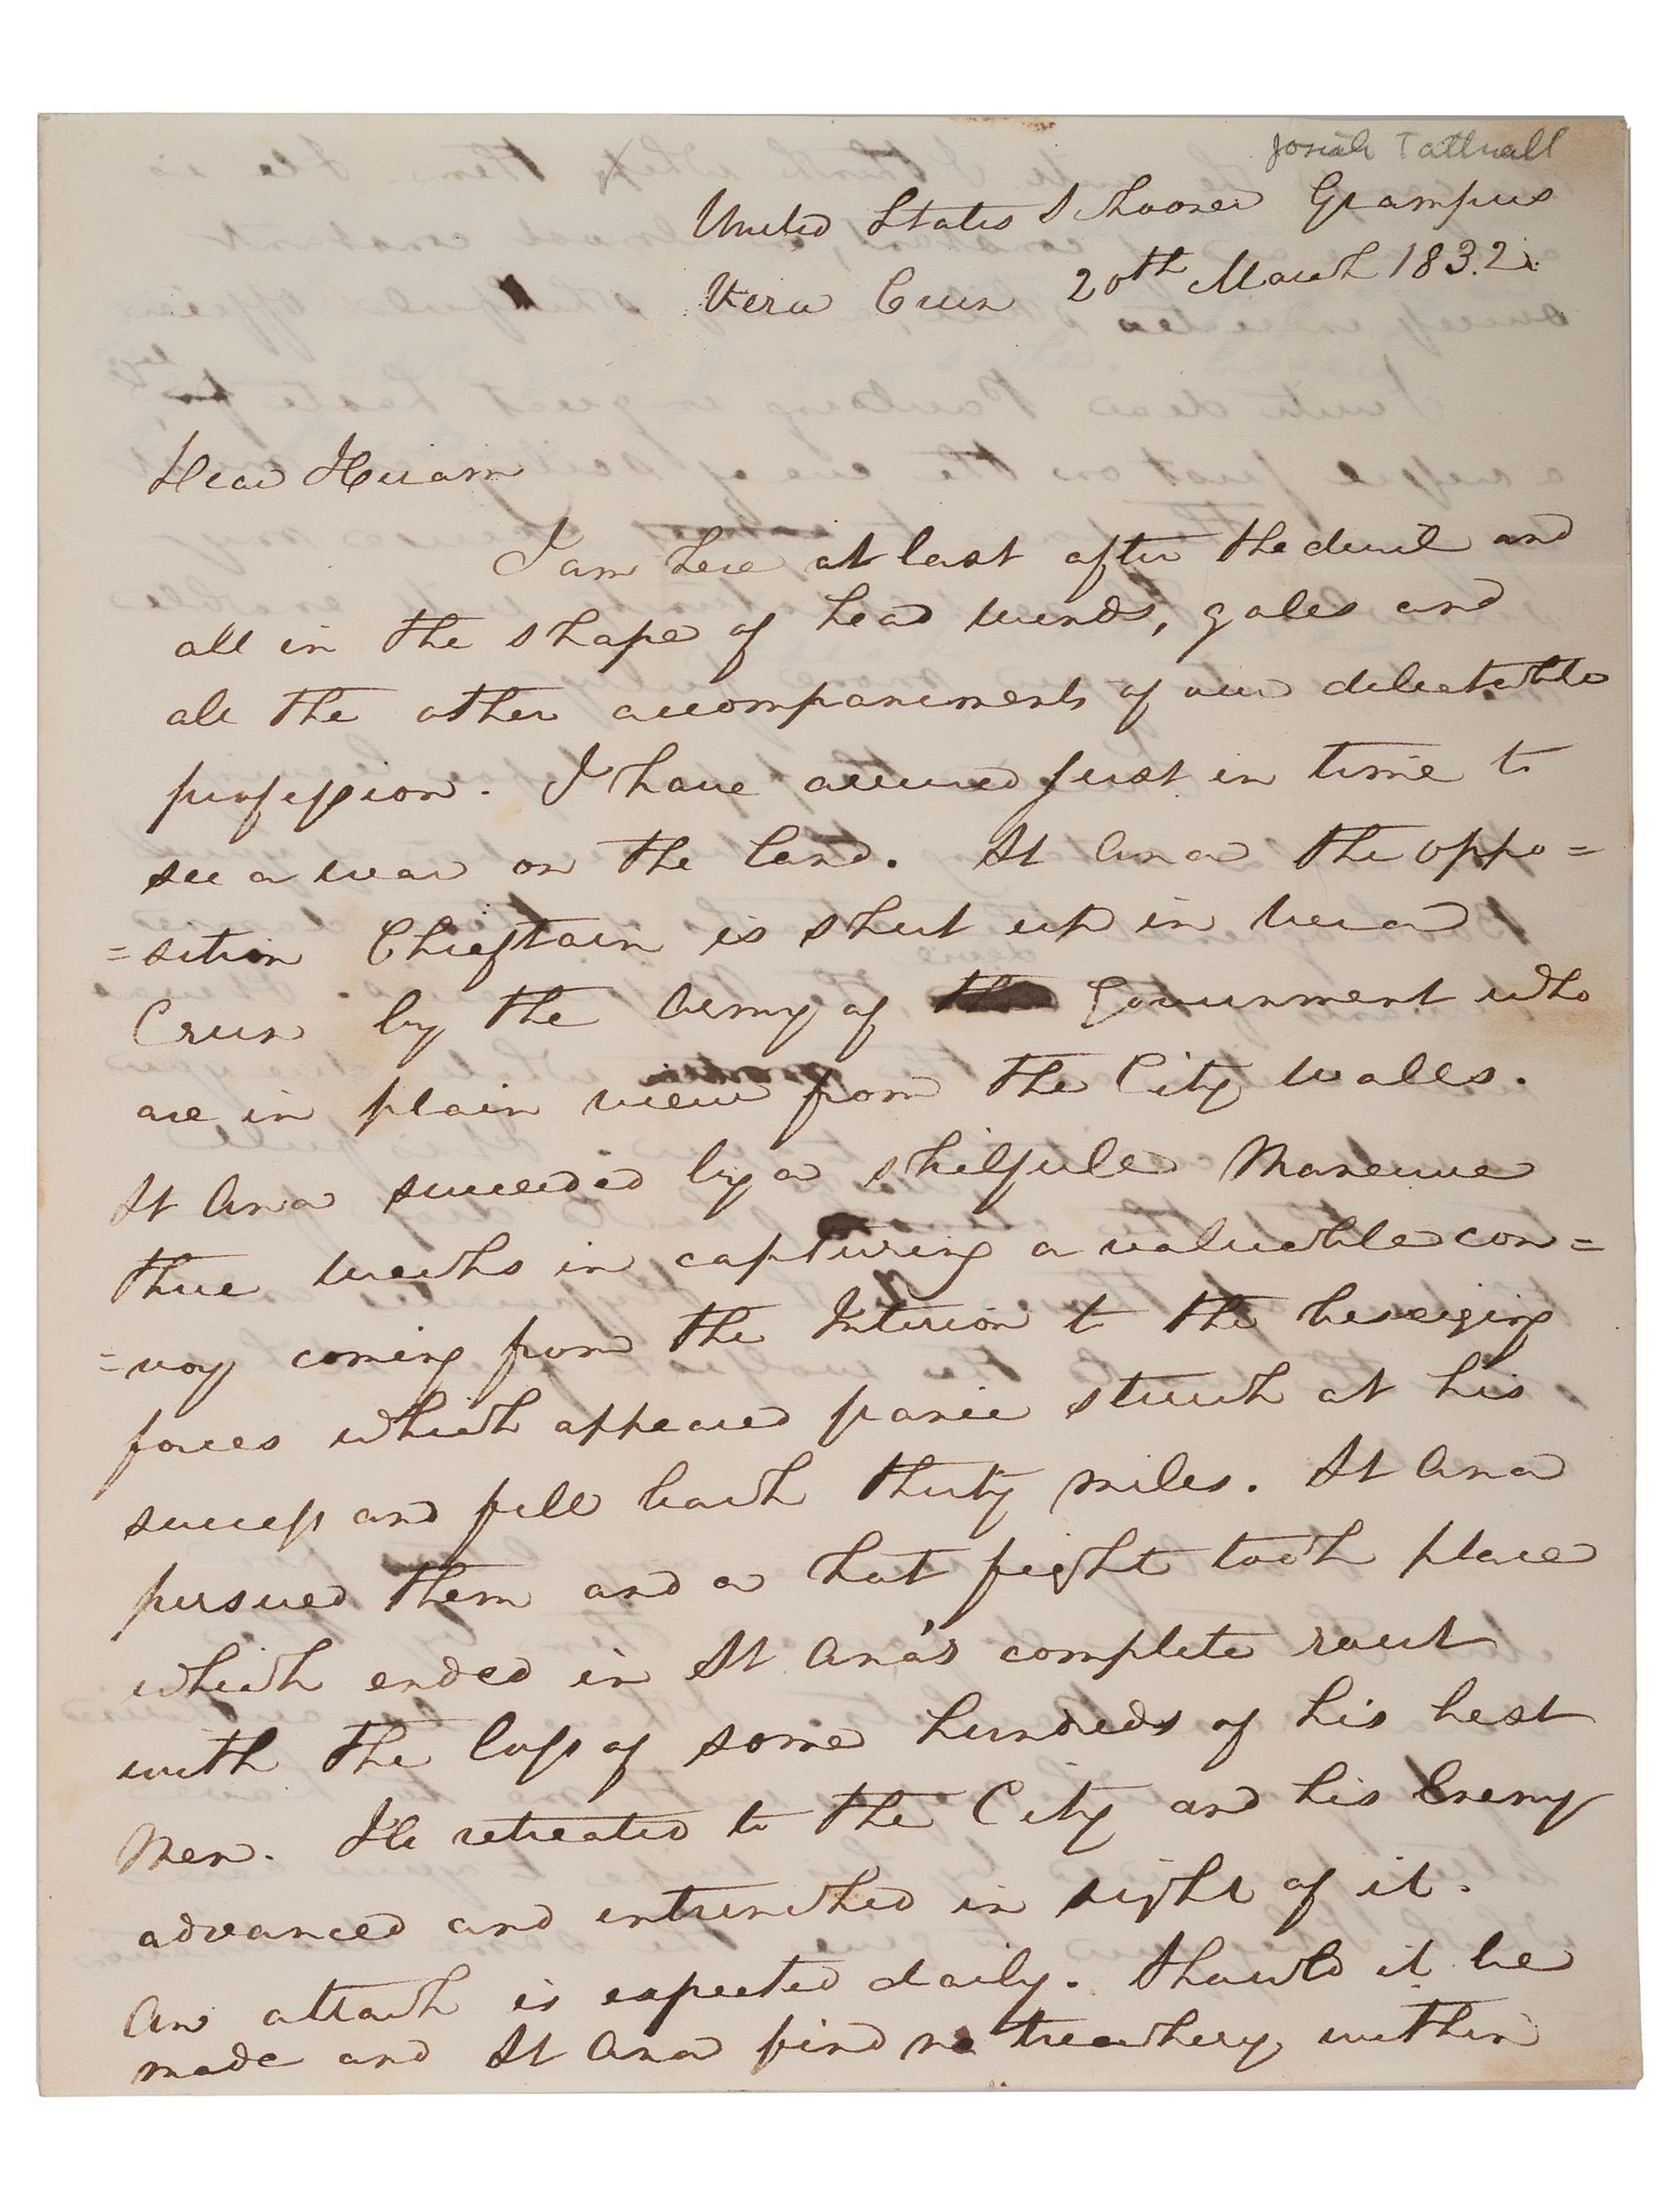 Josiah Tattnall
United States Schooner Grampus
Vera Cruz 20th March 1832.
Dear Hiram
I am here at last after the devil and
all in the shape of head winds, gales and
all the other accompaniments of our delectable
profession. I have arrived just in time to
see a war on the land. St Ana the oppo=
=sition Chieftain is shut up in Vera
Cruz by the Army of the Government who
are in plain view from the City walls.
St Ana succeeded by a skilfull Maneuve
three weeks in capturing a valuable con=
=voy coming from the Interior to the beseiging
forces which appeared panic struck at his
success and fell back thirty miles. St Ana
pursued them and a hot fight took place
which ended in St Ana's complete rout
with the loss of some hundreds of his best
Men. He retreated to the City and his Enemy
advanced and intrenched in sight of it.
An attack is expected daily. Should it be
made and St Ana find no treachery within